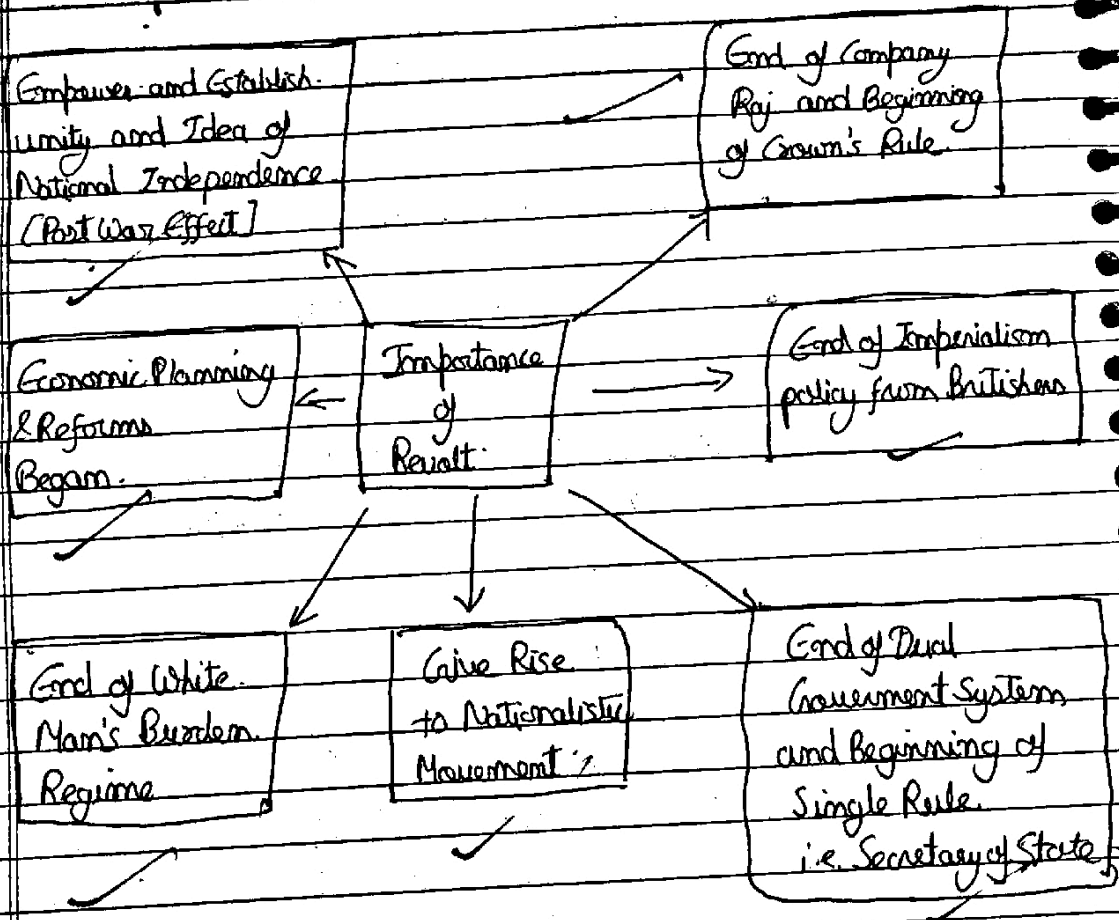 Empower and Establish
unity and Idea of
National Independence
[Post War Effect]
End of Company
Raj and Beginning
of Crown's Rule.
Economic Planning
& Reforms
Began.
Importance
of
Revolt.
End of Imperialism
policy from Britishers
End of White
Man's Burden
Regime
Give Rise
to Nationalistic
Movement
End of Dual
Government System
and Beginning of
Single Rule.
i.e. Secretary of State